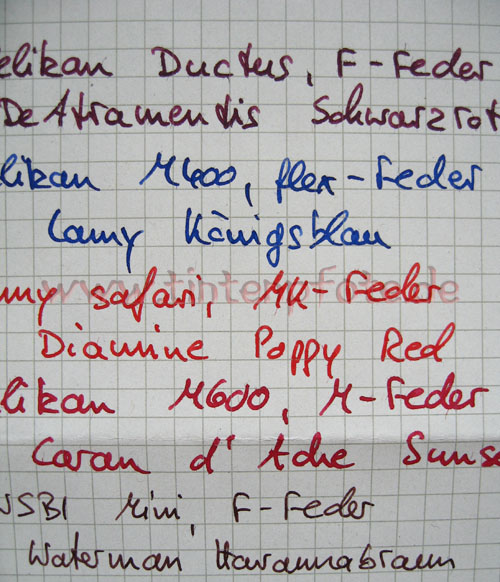 elikan Ductus, F-Feder
De Atramentis Schwarzrot
likan M400, flex-Feder
Lamy Königsblau
my safari, MK-Feder
Diamine Poppy Red
likan M600, M-Feder
Caran d'Ache Sunse
WSBI Mini, F-Feder
Waterman Havannabraun